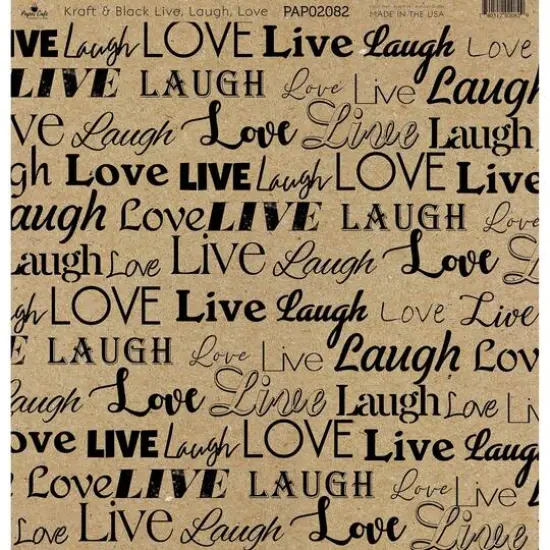 Paper Café Kraft & Black Live, Laugh, Love PAP02082 MADE IN THE USA
IVE Laugh LOVE Live Laugh Love
LIVE LAUGH Love Live Laugh
ve Laugh Love Live Laugh
gh Love LIVE Laugh LOVE Live
augh Love LIVE LAUGH Love
Laugh Love Live Laugh Love
gh LOVE Live Laugh Love Live
E LAUGH Love Live Laugh Lov
augh Love Live Laugh Love Live
ove LIVE Laugh LOVE Live Laug
Love LIVE LAUGH Love Live
Love Live Laugh Love